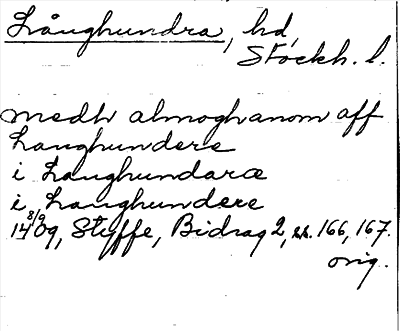 Långhundra, hd,
Stockh. l.
medh almoghanom aff
Langhundere
i Langhundaræ
i Langhundere
14 8/9 09, Styffe, Bidrag 2, ss. 166, 167.
orig.